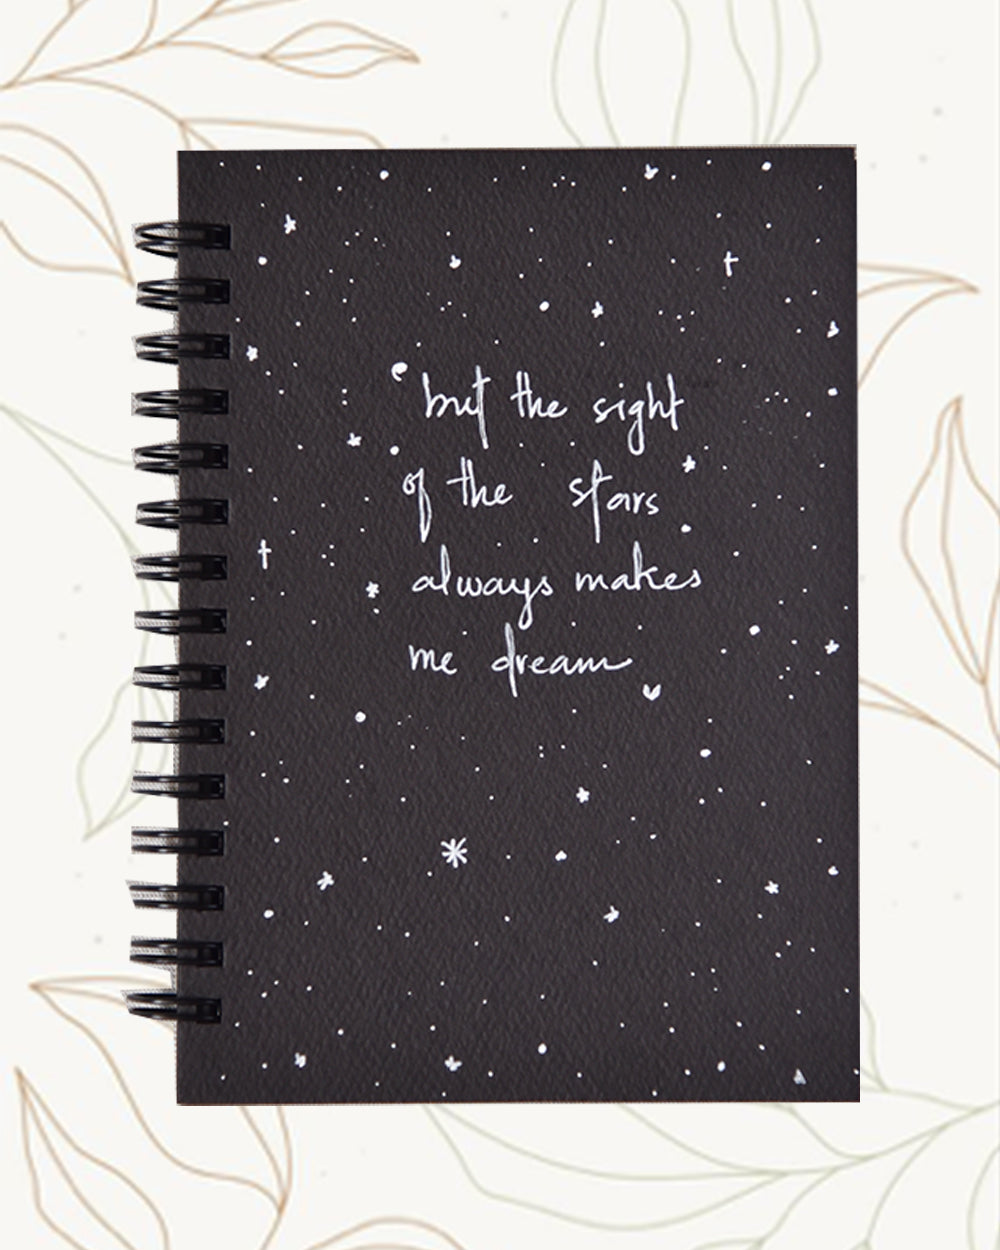 but the sight
of the stars
always makes
me dream